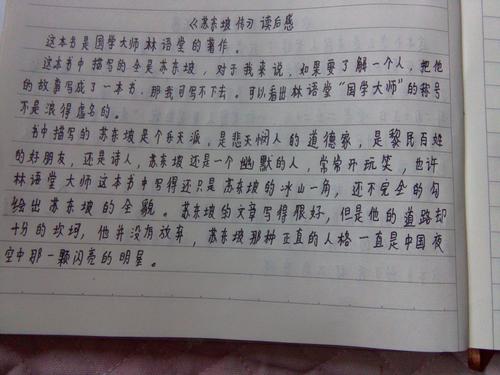 《苏东坡传》读后感
这本书是国学大师林语堂的著作。
这本书中描写的全是苏东坡，对于我来说，如果要了解一个人，把他
的故事写成了一本书，那我可写不下去。可以看出林语堂“国学大师”的称号
不是浪得虚名的。
书中描写的苏东坡是个乐天派，是悲天悯人的道德家，是黎民百姓
的好朋友，还是诗人，苏东坡还是一个幽默的人，常常开玩笑，也许
林语堂大师这本书中写得还只是苏东坡的冰山一角，还不完全的勾
绘出苏东坡的全貌。苏东坡的文章写得很好，但是他的道路却
十分的坎坷，他并没有放弃，苏东坡那种正直的人格一直是中国夜
空中那一颗闪亮的明星。